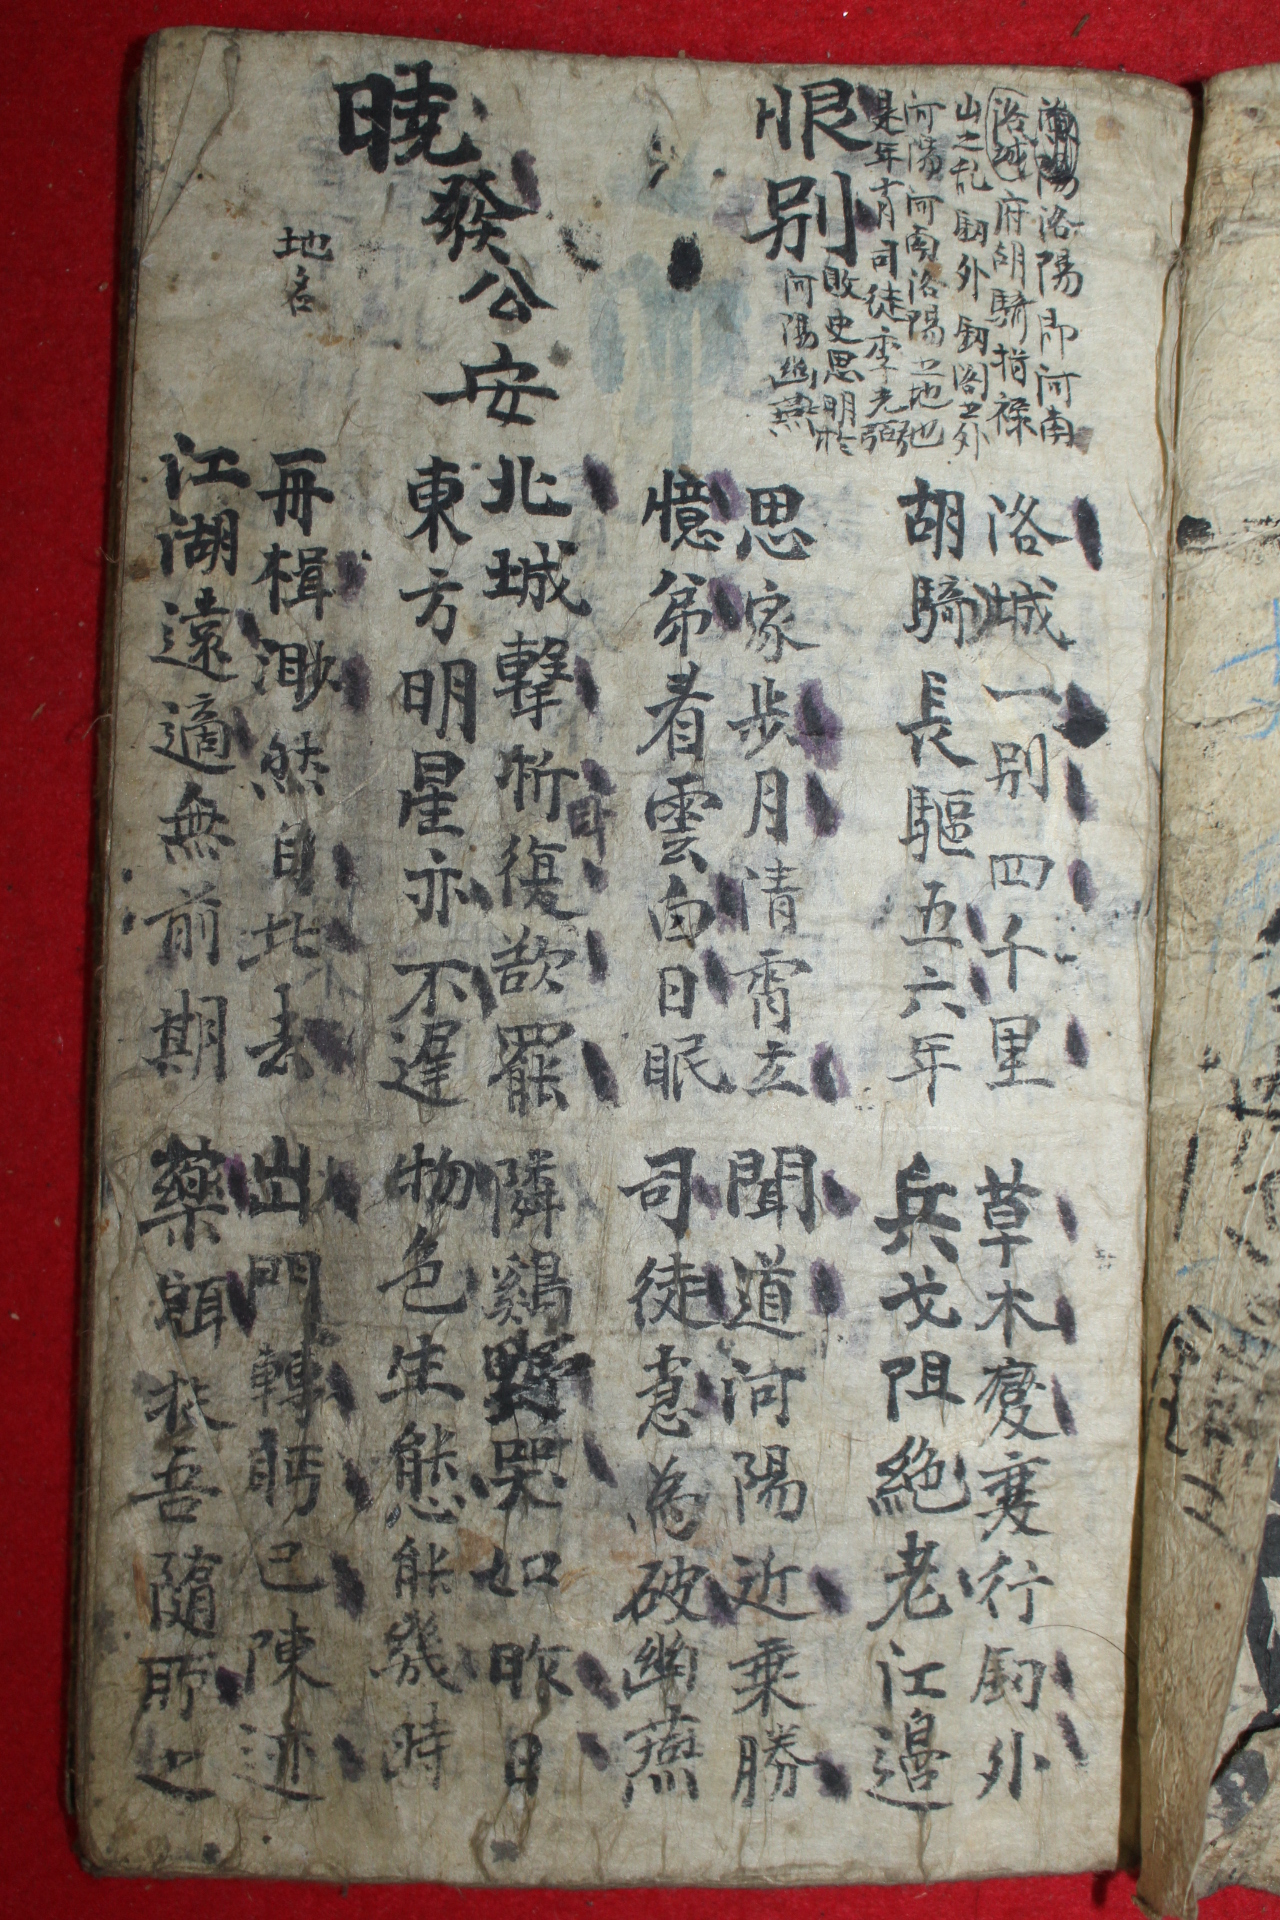 恨別
洛陽即河南
洛城府胡騎指祿
山之乱釰外釰阁之外
河陽河南洛陽之地也
是年十月司徒李光弼
敗史思明於
河陽幽燕
洛城一别四千里
草木變衰行釰外
胡騎長驅五六年
兵戈阻絶老江邉
思家步月清宵立
聞道河陽近乗勝
憶弟看雲白日眠
司徒急為破幽燕
曉發公安
地名
北城擊柝復欲罷
隣鷄野哭如昨日
東方明星亦不遲
物色生態能幾時
舟楫渺然自此去
出門轉眄已陳迹
江湖遠適無前期
藥餌扶吾隨所之